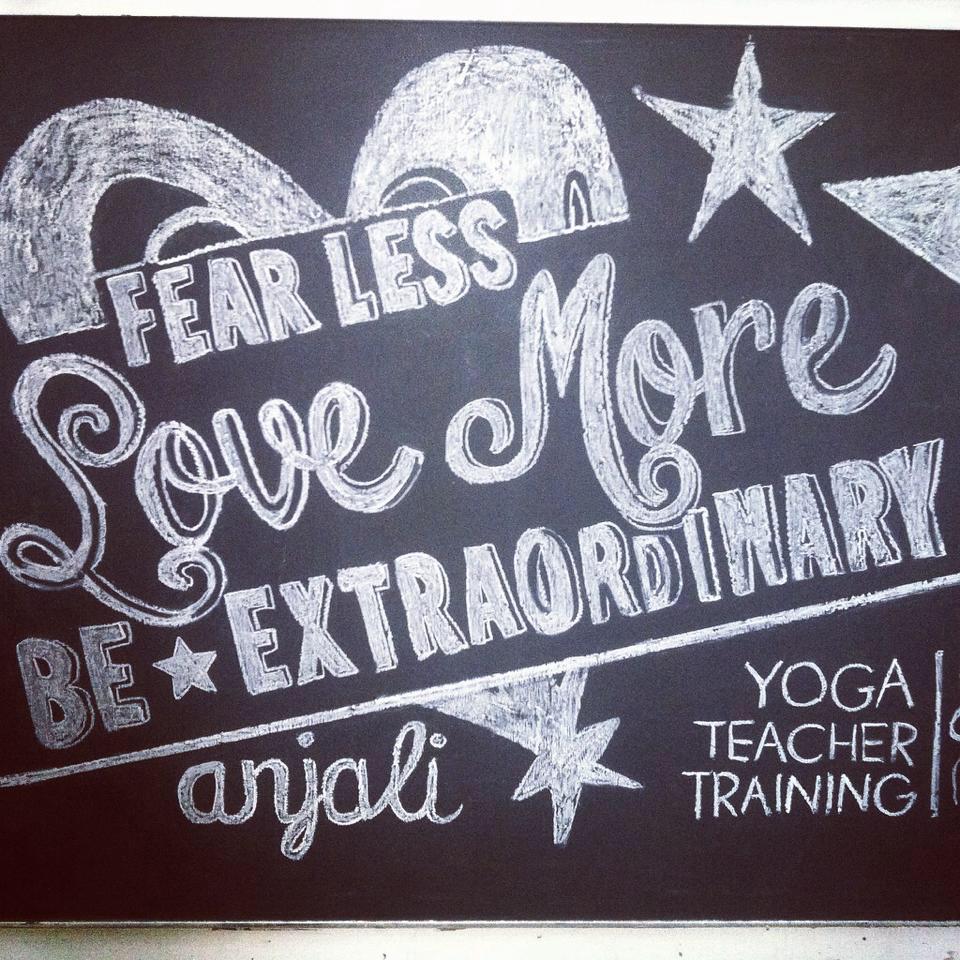 FEAR LESS
Love More
BE EXTRAORDINARY
anjali
YOGA
TEACHER
TRAINING